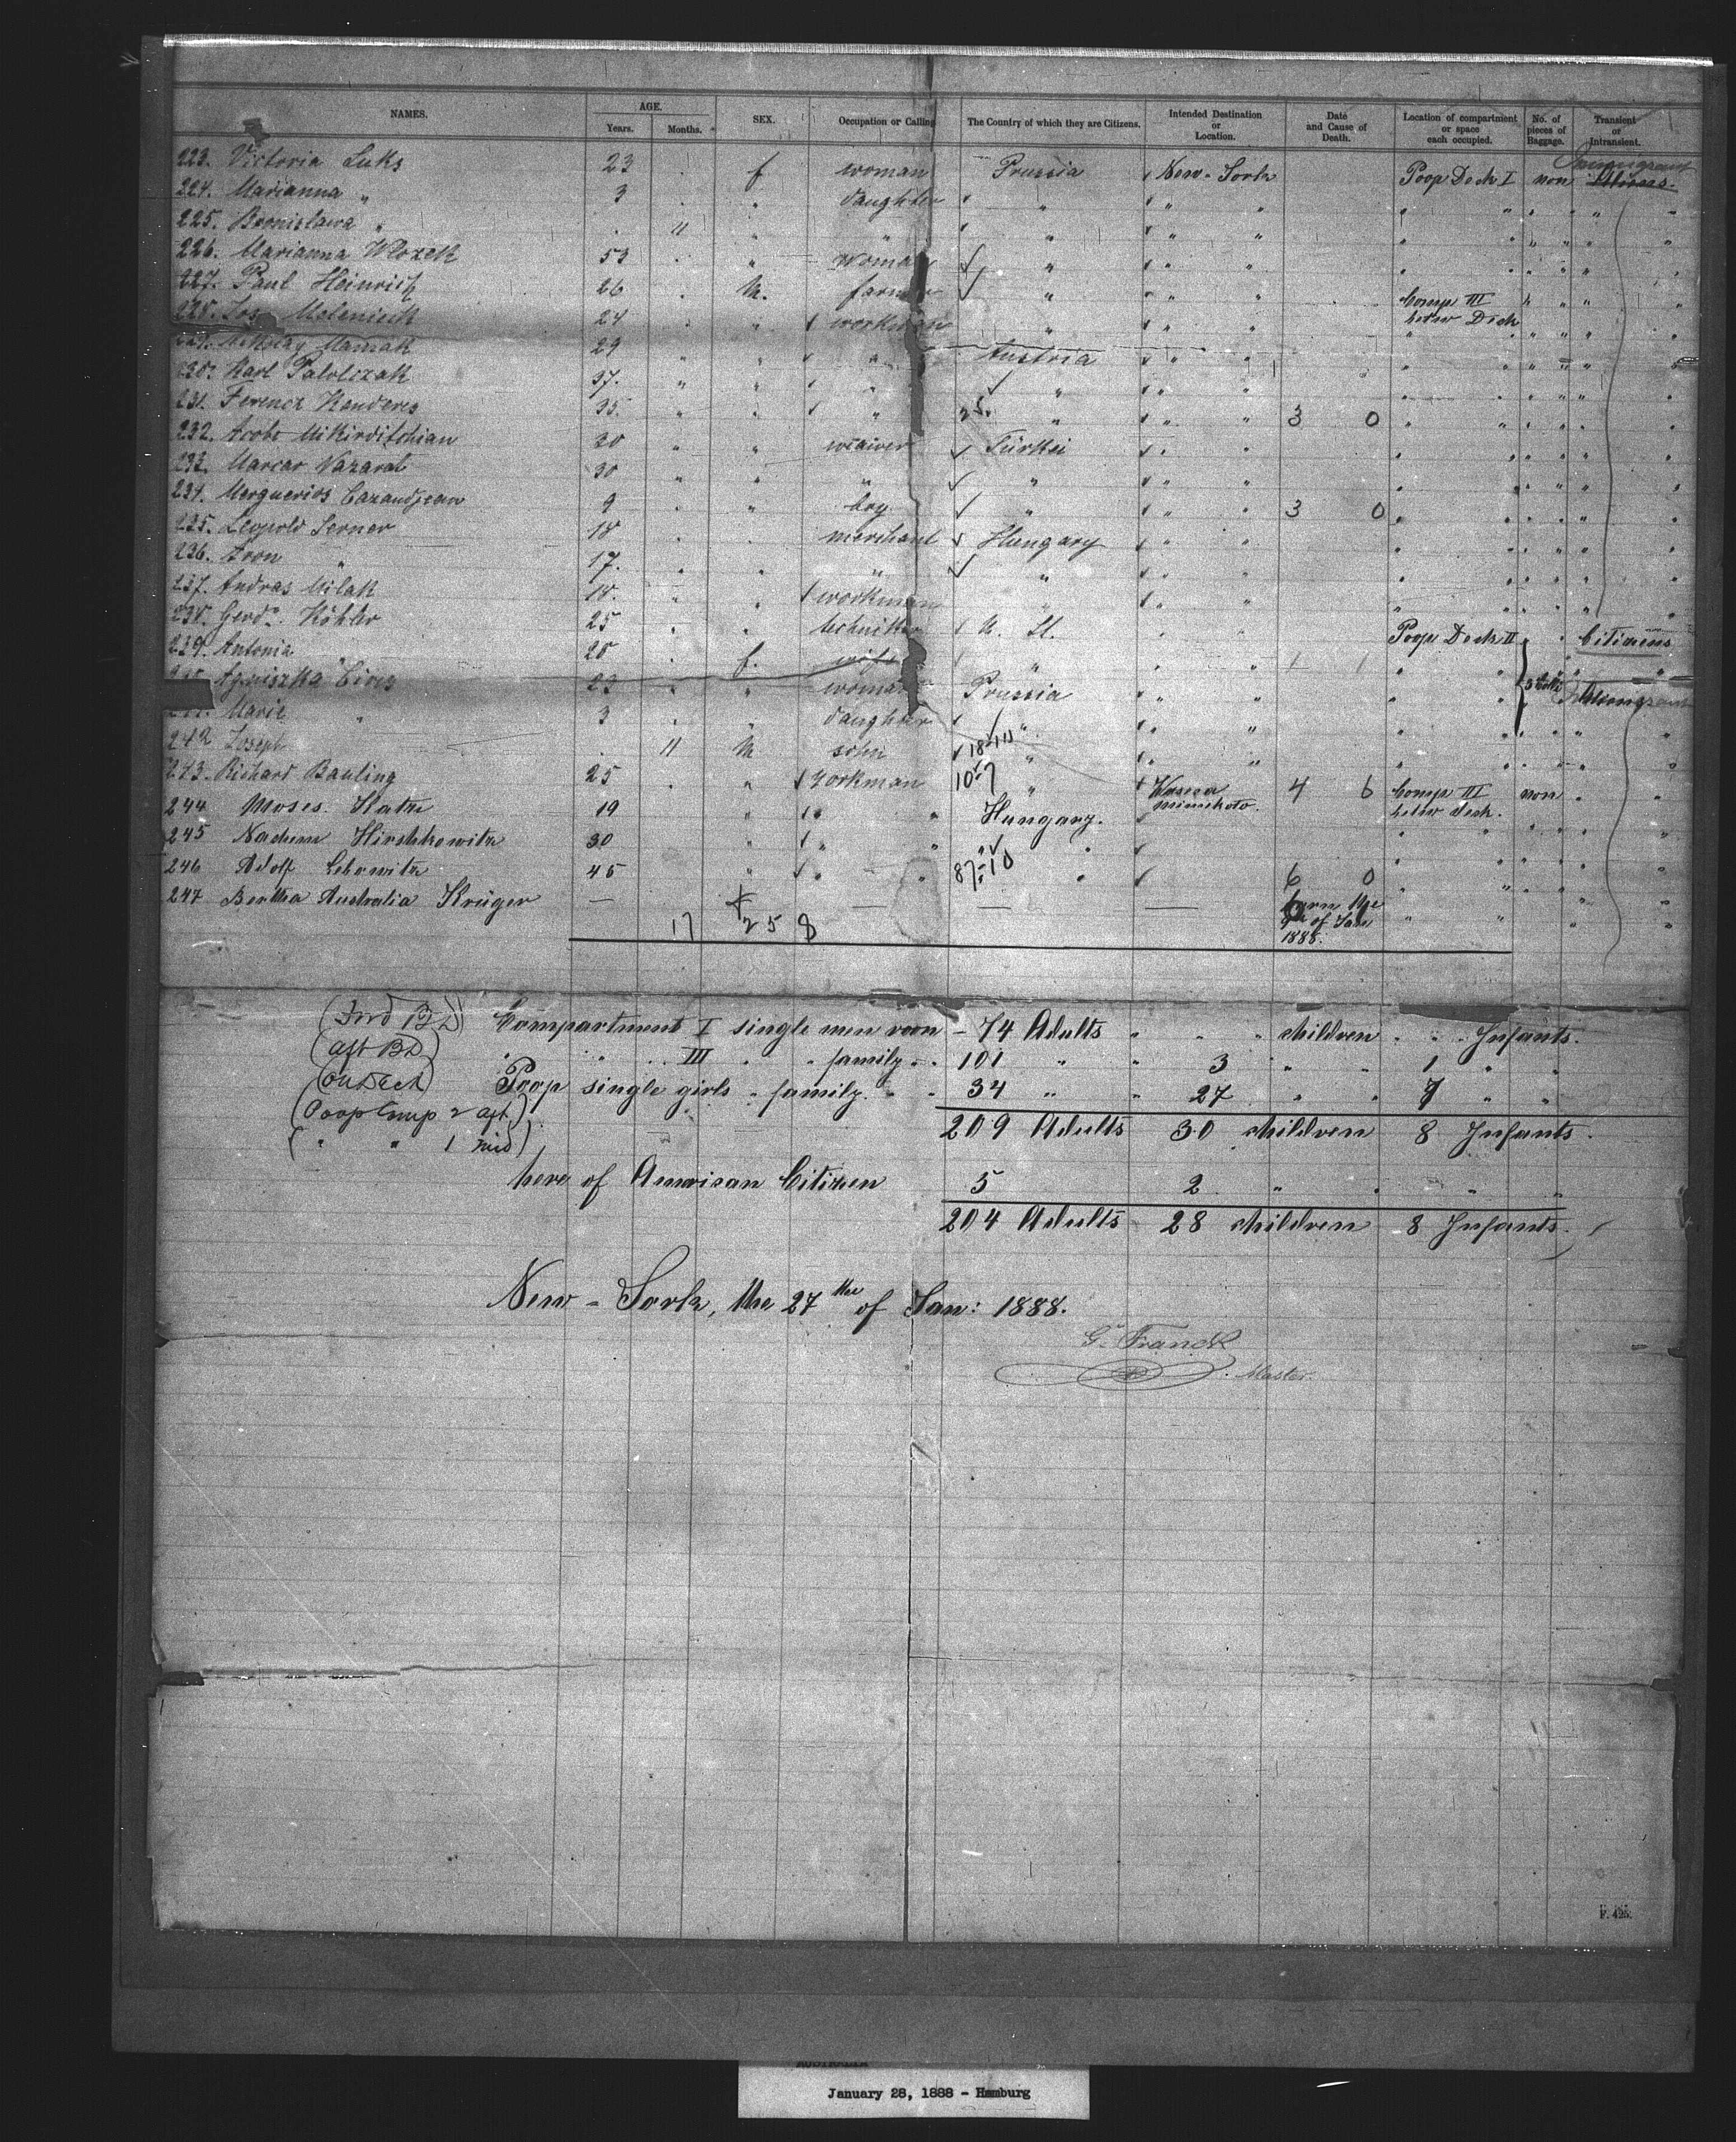 NAMES. AGE. Years. Months. SEX. Occupation or Calling The Country of which they are Citizens. Intended Destination or Location. Date and Cause of Death. Location of compartment or space each occupied. No. of pieces of Baggage. Transient or Intransient.
223. Victoria Luks 23 . f woman Prussia New-York Poop Deck I non
224. Marianna " 3 . " daughter " " "
225. Bronislawa " . 11 " " " " "
226. Marianna Wlozek 53 . " woman " " "
227. Paul Heinrich 26 . M. farmer " " " Comp III betw Deck
228. Melenieck 24 " workman " " "
229. Mikolay Maniak 29 " " " Austria " "
230. Karl 37. " " " " " "
231. Ferencz Kanderes 35. " " " 25. " " " 3 0
232. Mikirditchian 20 " " weaiver Türkei " "
233. Marcar Nazarat 30 " " " " " "
234. Merguerios Cazandjean 9 . " boy " " " 3 0
235. Leopold Serner 18 . . merchant Hungary " "
236. Aron " 17. . . " " " "
237. Andras Milak 18. " " workman " " "
238. Gerd. Köhler 25 . " techniker U. St. " " Poop Deck II Citizens
239. Antonia " 20 . f. wife " " "
Agniszka 23 . " woman Prussia " "
Marie " 3 . . daughter " " "
242 Joseph . 11 M sohn 18-10 " " "
243. Richard Bauling 25 . " workman 10-7 " 4 6 Comp III betw deck. non
244 Moses Katz 19 " " " Hungary.
245 Nachum Hirschkowitz 30 " " " "
246 Adolf Lebowitz 45 " " " 87-10 " 6 0
247 Bertha Australia Krüger — f — — — born the 9th of Jan 1888.
17 25 8
(Fwd BD) Compartment I single men room - 74 Adults " " " children " " Infants.
(aft BD) " " III " " family " 101 " " 3 " " 1 " "
(On Deck) Poop single girls " family " " 34 " " 27 " " 7 " "
(Poop Comp 2 aft) 209 Adults 30 children 8 Infants.
( " " 1 mid)
here of American Citizen 5 2 " " " "
204 Adults 28 children 8 Infants.
New-York, the 27the of Jan: 1888.
G. Franck
Master.
F. 425.
AUSTRALIA
January 28, 1888 - Hamburg